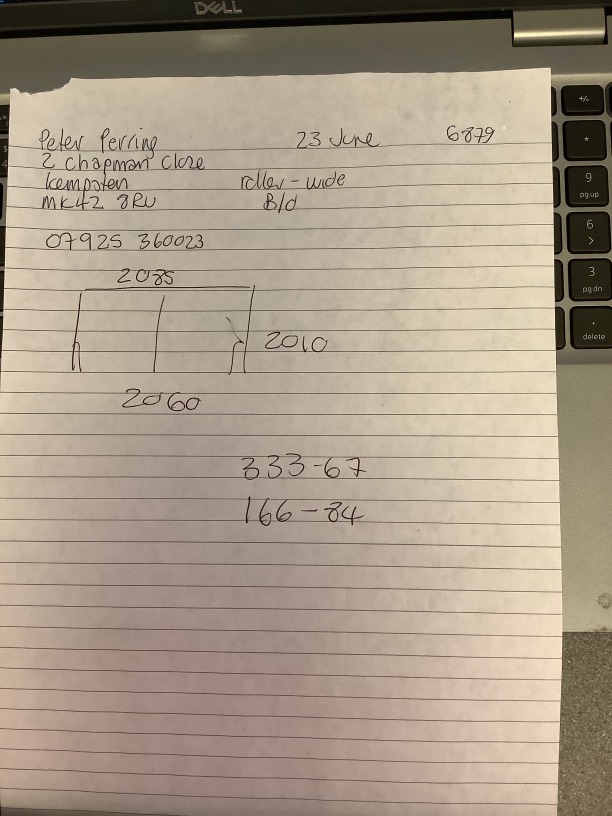 DELL
Peter Perring 23 June 6879
2 Chapman Close
Kempsten roller - wide
MK42 8RU B/d
07925 360023
2085
2010
2060
333-67
166-84
+/-
*
9
pg up
6
>
3
pg dn
.
delete